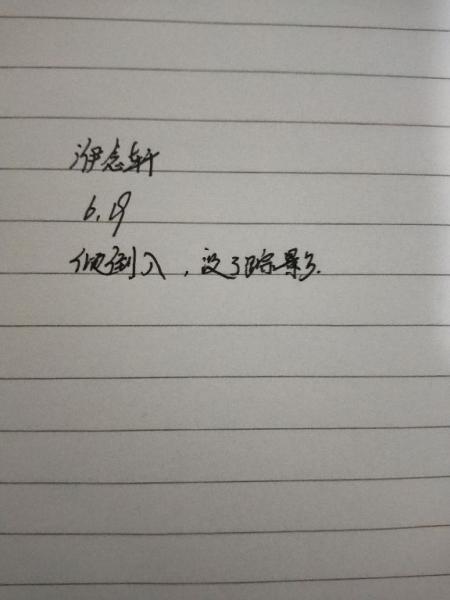 伊念轩
6.19
倾倒入,没了踪影了.